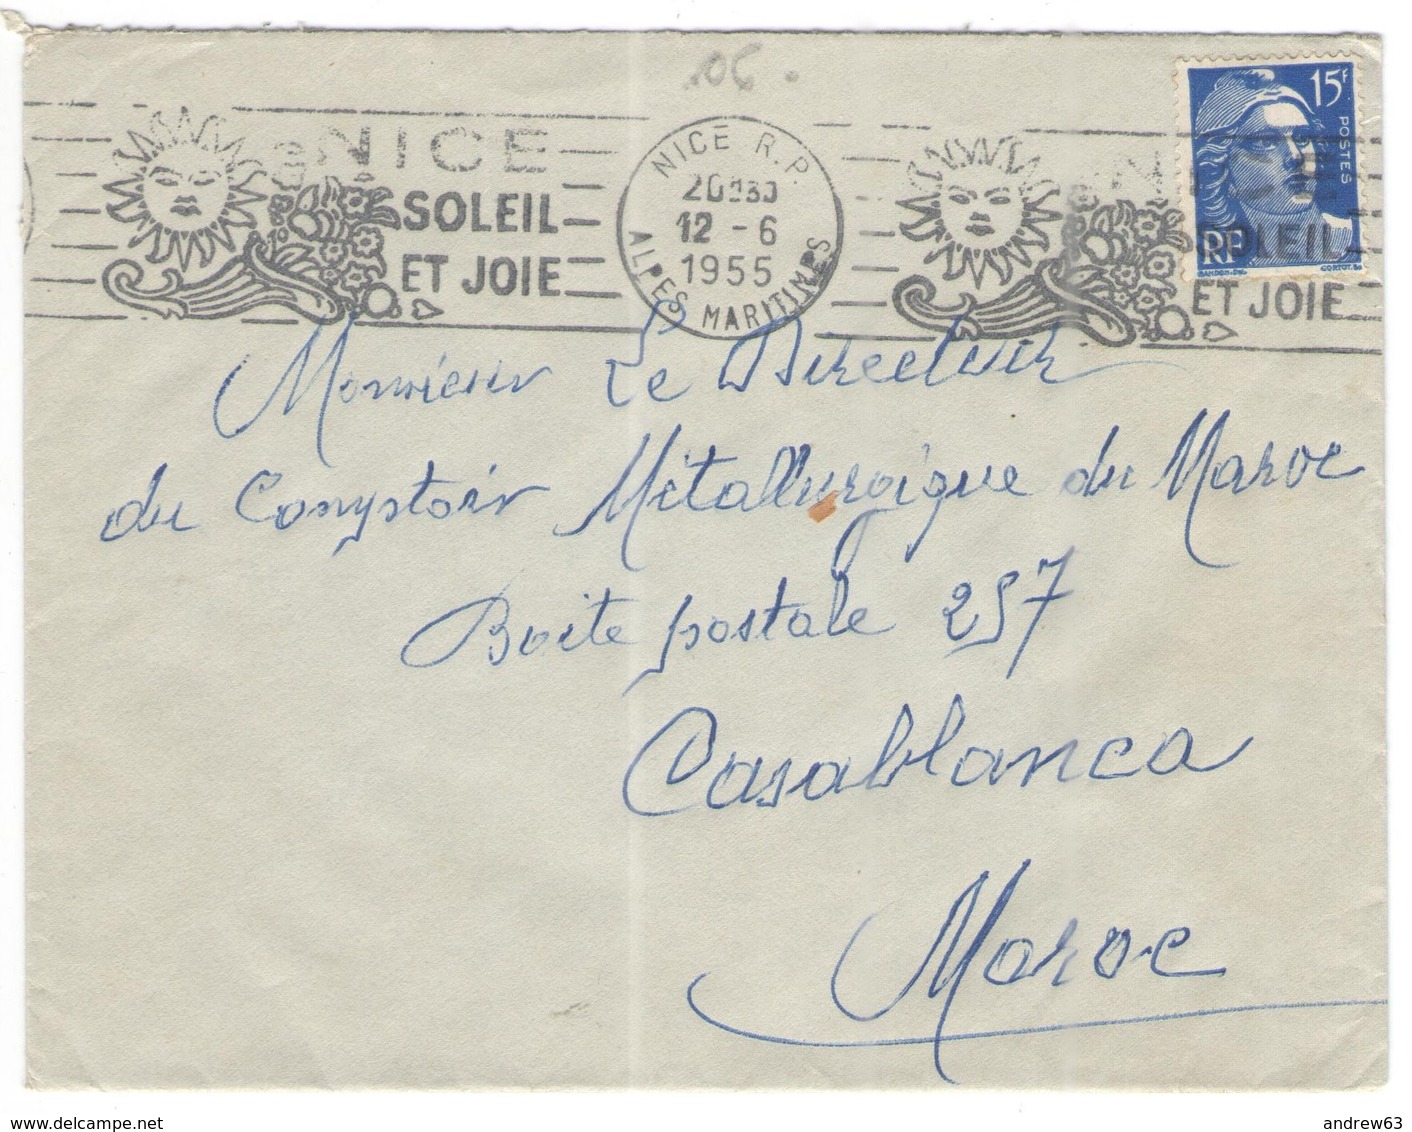 06
NICE
SOLEIL
ET JOIE
NICE R.P.
20H30
12 - 6
1955
ALPES MARITIMES
SOLEIL
ET JOIE
15F
POSTES
RF
GANDON DEL.
CORTOT. SC.
Monsieur Le Directeur
du Comptoir Métallurgique du Maroc
Boite postale 257
Casablanca
Maroc
www.delcampe.net
andrew63